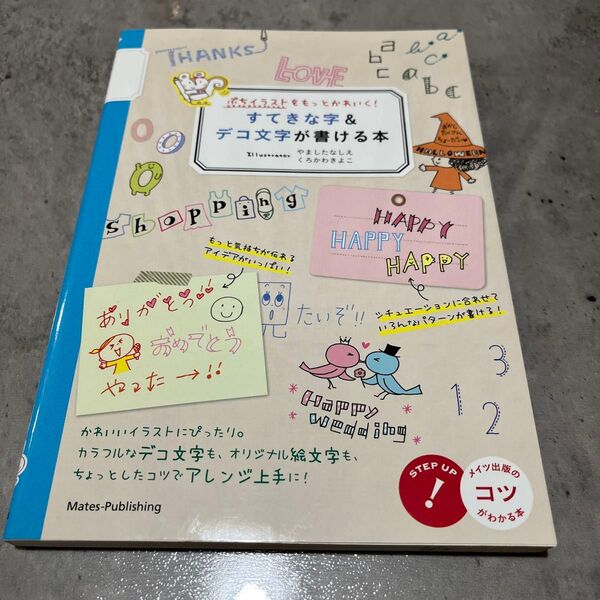 THANKS
LOVE
abc
abc
abc
ぷちイラストをもっとかわいく!
すてきな字&
デコ文字が書ける本
Illustrator やましたなしえ
くろかわきよこ
HALLOWEEN
Shopping
HAPPY
HAPPY
HAPPY
もっと気持ちが伝わる
アイデアがいっぱい!
シチュエーションに合わせて
いろんなパターンが書ける!
ありがとう!!
おめでとう
やった→!!
たいぞ!!
Happy
Wedding
3
1 2
かわいいイラストにぴったり。
カラフルなデコ文字も、オリジナル絵文字も、
ちょっとしたコツでアレンジ上手に!
Mates-Publishing
STEP UP
!
メイツ出版の
コツ
がわかる本